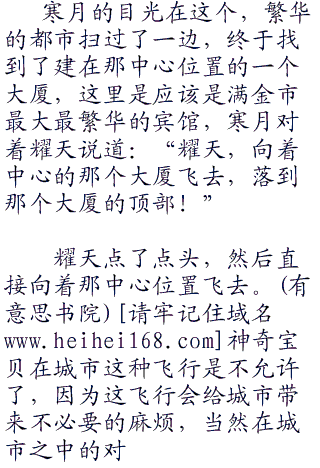 寒月的目光在这个，繁华
的都市扫过了一边，终于找
到了建在那中心位置的一个
大厦，这里是应该是满金市
最大最繁华的宾馆，寒月对
着耀天说道：“耀天，向着
中心的那个大厦飞去，落到
那个大厦的顶部！”
耀天点了点头，然后直
接向着那中心位置飞去。(有
意思书院)[请牢记住域名
www.heihei168.com]神奇宝
贝在城市这种飞行是不允许
了，因为这飞行会给城市带
来不必要的麻烦，当然在城
市之中的对